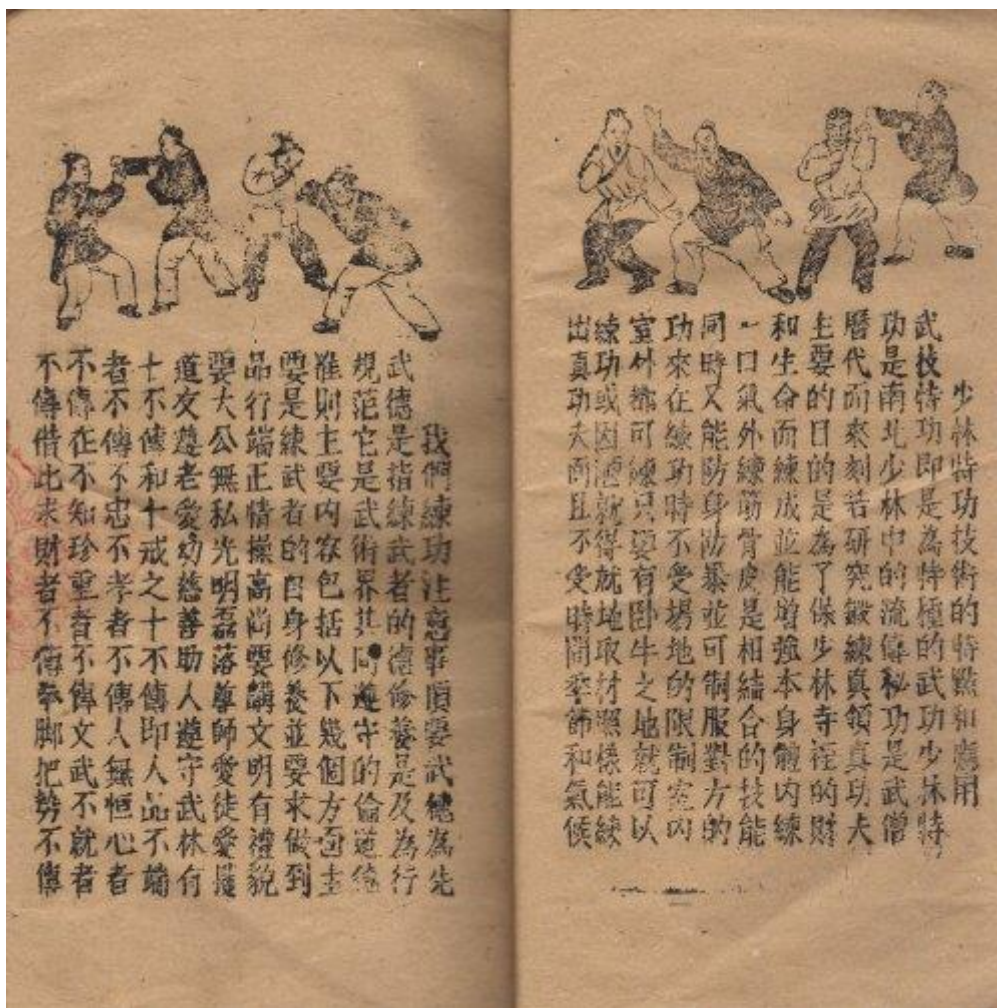 少林特功技術的特點和應用
武技特功即是為特種的武功少林特
功是南北少林中的流傳秘功是武僧
曆代而來刻苦研究鍛練真領真功夫
主要的目的是為了保少林寺的財
和生命而練成並能增強本身體内練
一口氣外練筋骨皮是相結合的技能
同時又能防身防暴並可制服對方的
功來在練功時不受場地的限制室内
室外都可練只要有卧牛之地就可以
練功或因酒就得就地取材照樣能練
出真功夫而且不受時間季節和氣候
我們練功注意事項要武德為先
武德是指練武者的德修養是及為行
規范它是武術界共同遵守的倫道德
准則主要内容包括以下幾個方面主
要是練武者的自身修養並要求做到
品行端正情操高尚要講文明有禮貌
要大公無私光明磊落尊師愛徒愛護
道友尊老愛幼慈善助人遵守武林有
十不傳和十戒之十不傳即人品不端
者不傳不忠不孝者不傳人無恒心者
不傳在不知珍重者不傳文武不就者
不傳借此求財者不傳拳脚把勢不傳